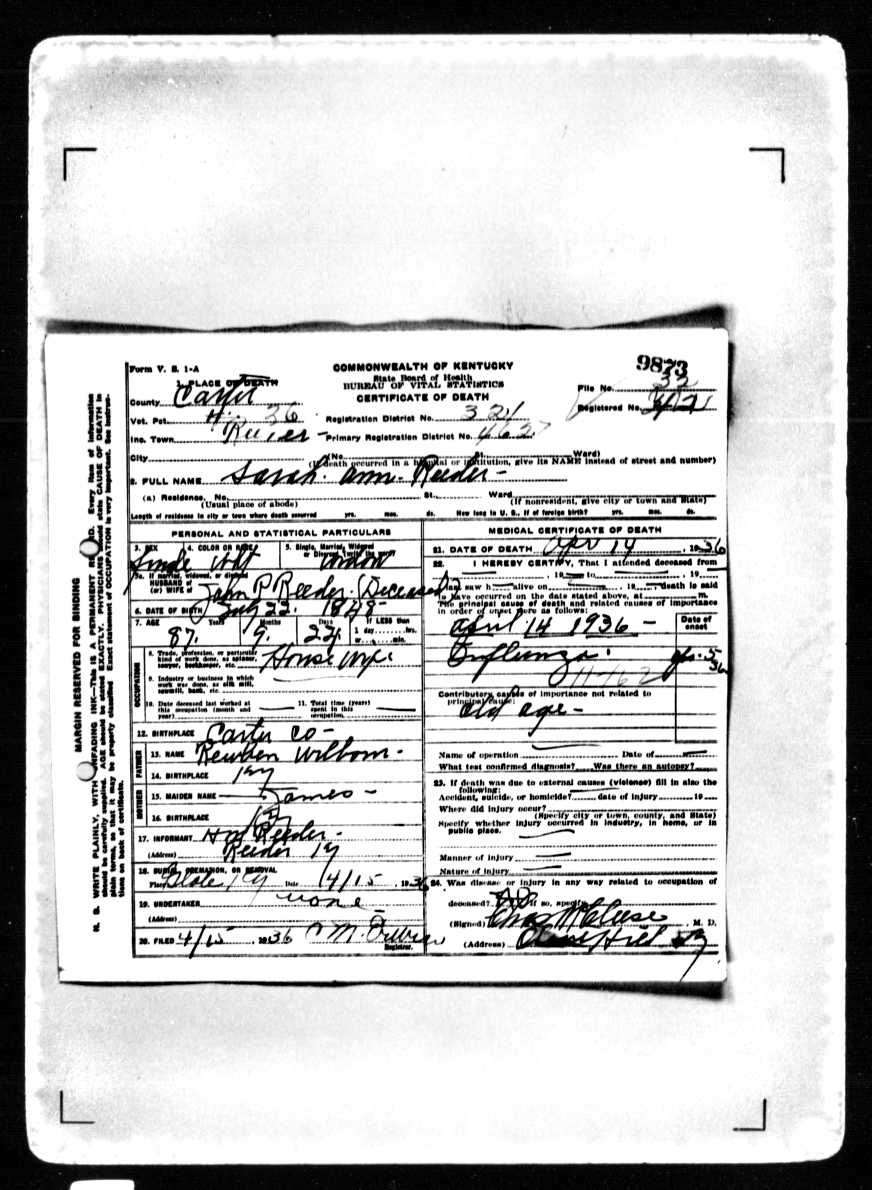 Form V. S. 1-A
COMMONWEALTH OF KENTUCKY
9873
1. PLACE OF DEATH
State Board of Health
BUREAU OF VITAL STATISTICS
File No. 32
County Carter
CERTIFICATE OF DEATH
Registered No.
Vot. Pct. 36
Registration District No. 321
Inc. Town Reeder - Primary Registration District No. 462
City (No. St. Ward)
(If death occurred in a hospital or institution, give its NAME instead of street and number)
2. FULL NAME Sarah. Ann. Reeder -
(a) Residence, No. St. Ward
(Usual place of abode) (If nonresident, give city or town and State)
Length of residence in city or town where death occurred yrs. mos. ds. How long in U. S., if of foreign birth? yrs. mos. ds.
PERSONAL AND STATISTICAL PARTICULARS
3. SEX 4. COLOR OR RACE 5. Single, Married, Widowed or Divorced (write the word)
5a. If married, widowed, or divorced
HUSBAND of
(or) WIFE of John P Reeder. (Deceased)
6. DATE OF BIRTH July 22. 1848-
7. AGE Years Months Days If LESS than
87. 9. 22. 1 day hrs.
or min.
OCCUPATION
8. Trade, profession, or particular
kind of work done, as spinner,
sawyer, bookkeeper, etc. House wife
9. Industry or business in which
work was done, as silk mill,
sawmill, bank, etc.
10. Date deceased last worked at
this occupation (month and
year)
11. Total time (years)
spent in this
occupation
12. BIRTHPLACE Carter co -
FATHER
13. NAME
14. BIRTHPLACE Ky
MOTHER
15. MAIDEN NAME James -
16. BIRTHPLACE Ky
17. INFORMANT Reeder -
(Address) Reeder Ky
18. BURIAL, CREMATION, OR REMOVAL
Place Ky Date 4/15, 1936
19. UNDERTAKER none
(Address)
20. FILED 4/15 1936
Registrar.
MEDICAL CERTIFICATE OF DEATH
21. DATE OF DEATH Apr 14, 1936
22. I HEREBY CERTIFY, That I attended deceased from
, 19 to , 19
I last saw h alive on , 19 , death is said
to have occurred on the date stated above, at m.
The principal cause of death and related causes of importance
in order of onset were as follows:
Date of
onset
April 14 1936 -
Influenza.
Contributory causes of importance not related to
principal cause:
old age -
Name of operation Date of
What test confirmed diagnosis? Was there an autopsy?
23. If death was due to external causes (violence) fill in also the
following:
Accident, suicide, or homicide? date of injury 19
Where did injury occur?
(Specify city or town, county, and State)
Specify whether injury occurred in industry, in home, or in
public place.
Manner of injury
Nature of injury
24. Was disease or injury in any way related to occupation of
deceased? No If so, specify
(Signed) M. D.
(Address) Olive Hill Ky
MARGIN RESERVED FOR BINDING
N. B. WRITE PLAINLY, WITH UNFADING INK—This IS A PERMANENT RECORD. Every item of information
should be carefully supplied. AGE should be stated EXACTLY. PHYSICIANS should state CAUSE OF DEATH in
plain terms, so that it may be properly classified. Exact statement of OCCUPATION is very important. See instruc-
tions on back of certificate.